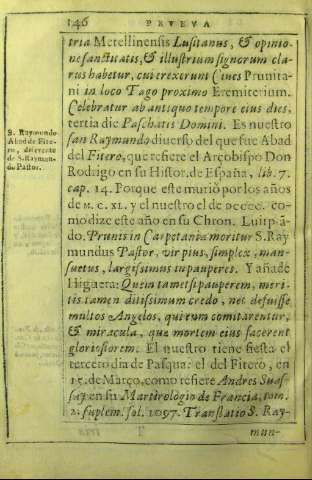 146 PRVEVA
tria Metellinensis Lusitanus, & opinio-
ne sanctitatis, & illustrium signorum cla-
rus habetur, cui erexerunt Ciues Prunita-
ni in loco Tago proximo Eremiterium.
Celebratur ab antiquo tempore eius dies,
tertia die Paschatis Domini. Es nuestro
san Raymundo diuerso del que fue Abad
del Fitero, que refiere el Arçobispo Don
Rodrigo en su Histor. de España, lib. 7.
cap. 14. Porque este murió por los años
de M. C. XL. y el nuestro el de DCCCC. co-
mo dize este año en su Chron. Luitprã-
do. Prunis in Carpetania moritur S. Ray
mundus Pastor, vir pius, simplex, man-
suetus, largissimus in pauperes. Y añade
Higuera: Quem tametsi pauperem, meri-
tis tamen ditissimum credo, nec defuisse
multos Angelos, qui eum comitarentur,
& miracula, quæ mortem eius facerent
gloriosiorem. El nuestro tiene fiesta el
tercero dia de Pasqua: el del Fitero, en
15. de Março, como refiere Andres Sus-
say en su Martirologio de Francia, tom.
2. suplem. fol. 1097. Translatio S. Ray-
mun-
S. Raymundo
Abad de Fite-
ro, diferente
de S. Raymun-
do Pastor.